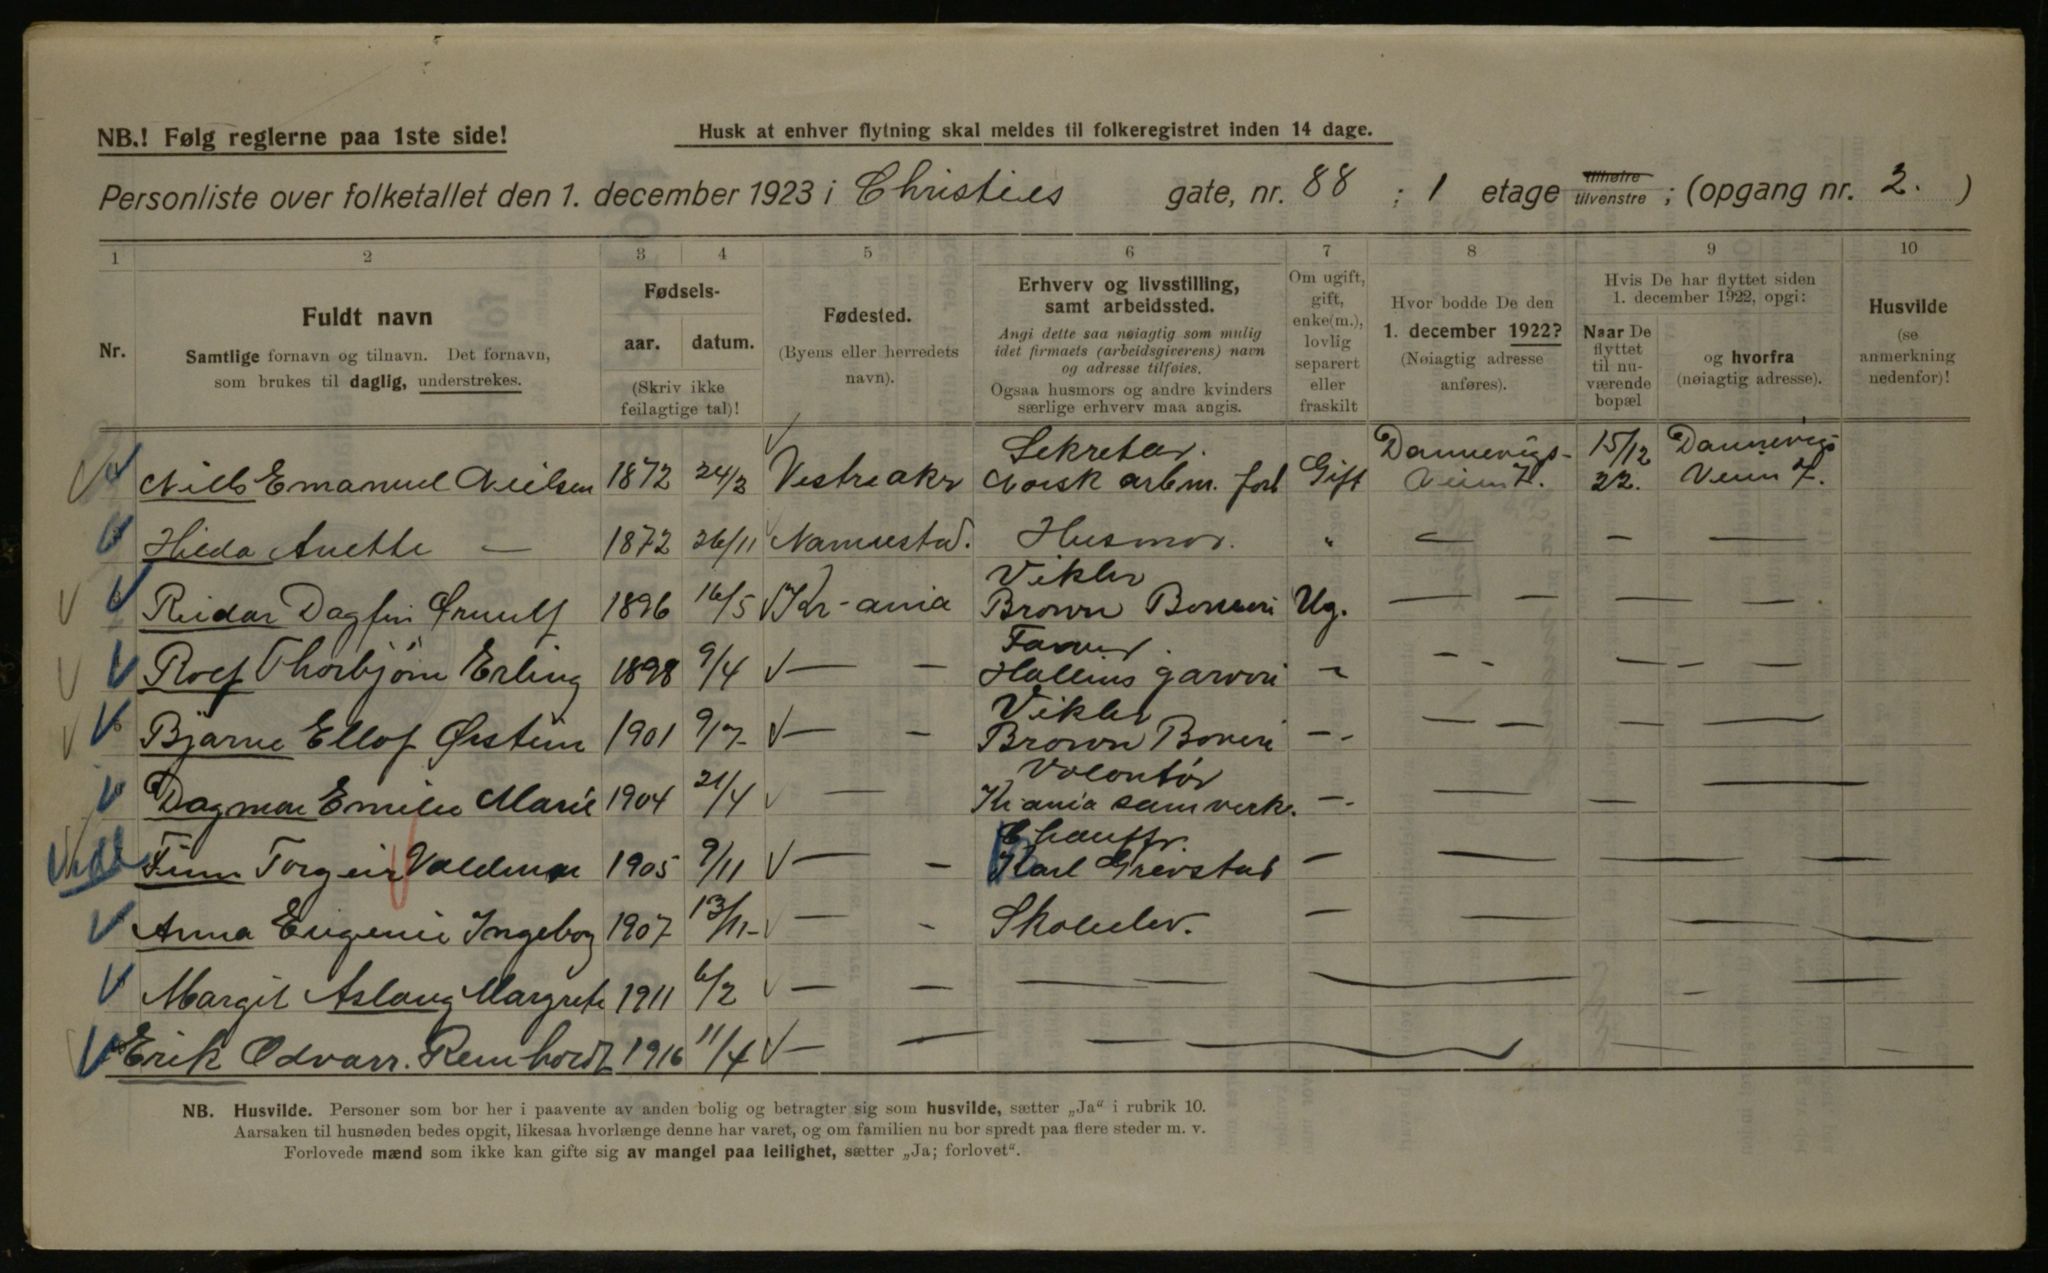 NB.! Følg reglerne paa 1ste side!
Husk at enhver flytning skal meldes til folkeregistret inden 14 dage.
Personliste over folketallet den 1. december 1923 i Christies gate, nr. 88 ; 1 etage tilhøire tilvenstre ; (opgang nr. 2. )
1 2 3 4 5 6 7 8 9 10
Nr.
Fuldt navn
Samtlige fornavn og tilnavn. Det fornavn,
som brukes til daglig, understrekes.
Fødsels-
aar. datum.
(Skriv ikke
feilagtige tal)!
Fødested.
(Byens eller herredets
navn).
Erhverv og livsstilling,
samt arbeidssted.
Angi dette saa nøiagtig som mulig
idet firmaets (arbeidsgiverens) navn
og adresse tilføies.
Ogsaa husmors og andre kvinders
særlige erhverv maa angis.
Om ugift,
gift,
enke(m.),
lovlig
separert
eller
fraskilt
Hvor bodde De den
1. december 1922?
(Nøiagtig adresse
anføres).
Hvis De har flyttet siden
1. december 1922, opgi:
Naar De
flyttet
til nu-
værende
bopæl
og hvorfra
(nøiagtig adresse).
Husvilde
(se
anmerkning
nedenfor)!
Sekretær. Dannevigs- 15/12 Dannevigs
Nils Emanuel Nielsen 1872 24/3 Vestreakr Norsk arbm. forb Gift Veien 7. 22. Veien 7.
Hilda Anette — 1872 26/11 Namsestad. Husmor. " — — —
Vikler
Reidar Dagfin Ørnulf 1896 16/5 Kr-ania Brown Boveri Ug. — — — — —
Farver.
Rolf Thorbjørn Erling 1898 9/4 — — Hallens garveri — — — — —
Vikler
Bjarne Ellof Østein 1901 9/7 — — Brown Boveri — — — — —
Volontør
Dagmar Emilie Marie 1904 21/4 — Kr ania samverk. — — — —
Chauffr.
Finn Torgeir Valdemar 1905 9/11 — — Karl Grevstad — — — — —
Anna Eugenie Ingeborg 1907 13/11 — — Skoleelev. — — — —
Margit Aslaug Margrete 1911 6/2 — — — — — — —
Erik Odvarr. Reinholdt 1916 11/4 — — — — — —
NB. Husvilde. Personer som bor her i paavente av anden bolig og betragter sig som husvilde, sætter „Ja" i rubrik 10.
Aarsaken til husnøden bedes opgit, likesaa hvorlænge denne har varet, og om familien nu bor spredt paa flere steder m. v.
Forlovede mænd som ikke kan gifte sig av mangel paa leilighet, sætter „Ja; forlovet".